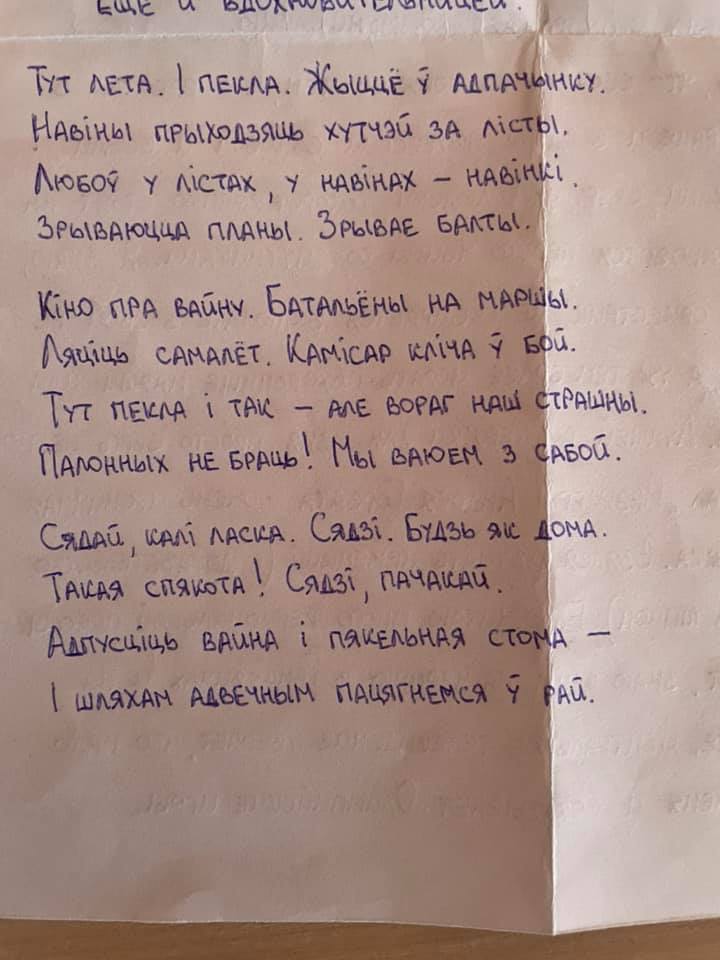 ЕЩЁ И ВДОХНОВИТЕЛЬНИЦЕЙ.
ТУТ ЛЕТА. І ПЕКЛА. ЖЫЦЦЁ Ў АДПАЧЫНКУ.
НАВІНЫ ПРЫХОДЗЯЦЬ ХУТЧЭЙ ЗА ЛІСТЫ.
ЛЮБОЎ У ЛІСТАХ, У НАВІНАХ – НАВІНКІ.
ЗРЫВАЮЦЦА ПЛАНЫ. ЗРЫВАЕ БАЛТЫ.
КІНО ПРА ВАЙНУ. БАТАЛЬЁНЫ НА МАРШЫ.
ЛЯЦІЦЬ САМАЛЁТ. КАМІСАР КЛІЧА Ў БОЙ.
ТУТ ПЕКЛА І ТАК – АЛЕ ВОРАГ НАШ СТРАШНЫ.
ПАЛОННЫХ НЕ БРАЦЬ! МЫ ВАЮЕМ З САБОЙ.
СЯДАЙ, КАЛІ ЛАСКА. СЯДЗІ. БУДЗЬ ЯК ДОМА.
ТАКАЯ СПЯКОТА! СЯДЗІ, ПАЧАКАЙ.
АДПУСЦІЦЬ ВАЙНА І ПЯКЕЛЬНАЯ СТОМА –
І ШЛЯХАМ АДВЕЧНЫМ ПАЦЯГНЕМСЯ Ў РАЙ.